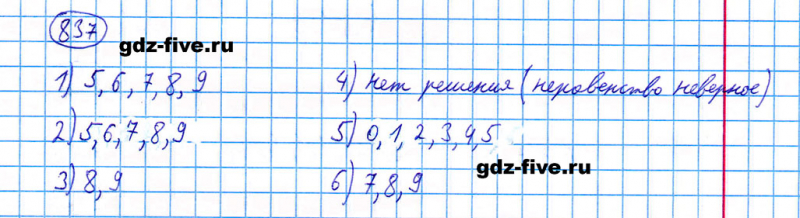 837
gdz-five.ru
1) 5, 6, 7, 8, 9
2) 5, 6, 7, 8, 9
3) 8, 9
4) нет решения (неравенство неверное)
5) 0, 1, 2, 3, 4, 5
gdz-five.ru
6) 7, 8, 9